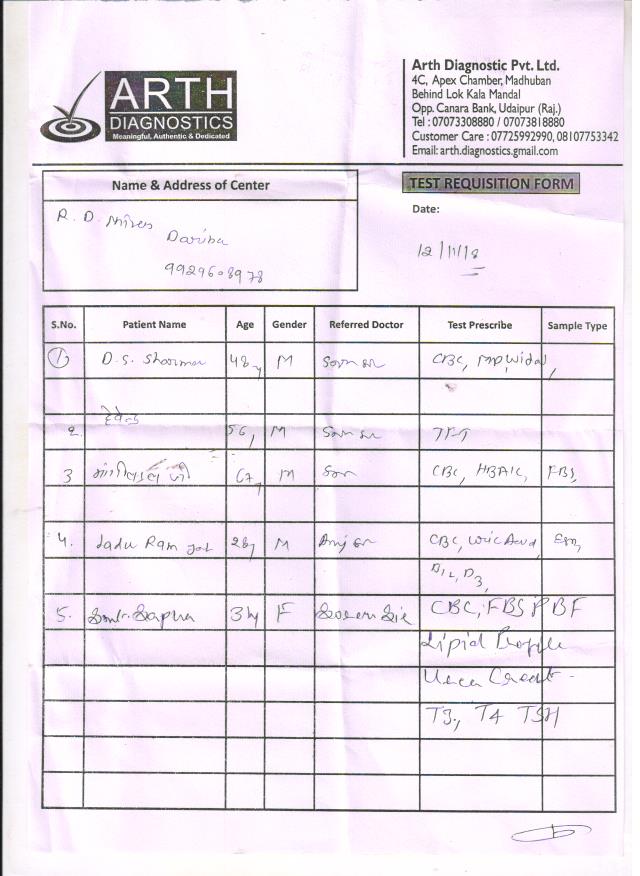 ARTH
DIAGNOSTICS
Meaningful, Authentic & Dedicated
Arth Diagnostic Pvt. Ltd.
4C, Apex Chamber, Madhuban
Behind Lok Kala Mandal
Opp. Canara Bank, Udaipur (Raj.)
Tel : 07073308880 / 07073818880
Customer Care : 07725992990, 08107753342
Email: arth.diagnostics.gmail.com
Name & Address of Center
TEST REQUISITION FORM
R. D. Mines
Dariba
9929608978
Date:
12/11/18
S.No. Patient Name Age Gender Referred Doctor Test Prescribe Sample Type
1 D.S. Sharma 48y M CBC, MP, Widal,
2. 56y M TFT
3 67y M CBC, HBA1C, FBS,
4. Ladu Ram 28y M CBC, Uric Acid,
B12, D3,
5. Smt. Sapna F CBC, FBS, PBF
Lipid Profile
Urea Creat -
T3, T4 TSH